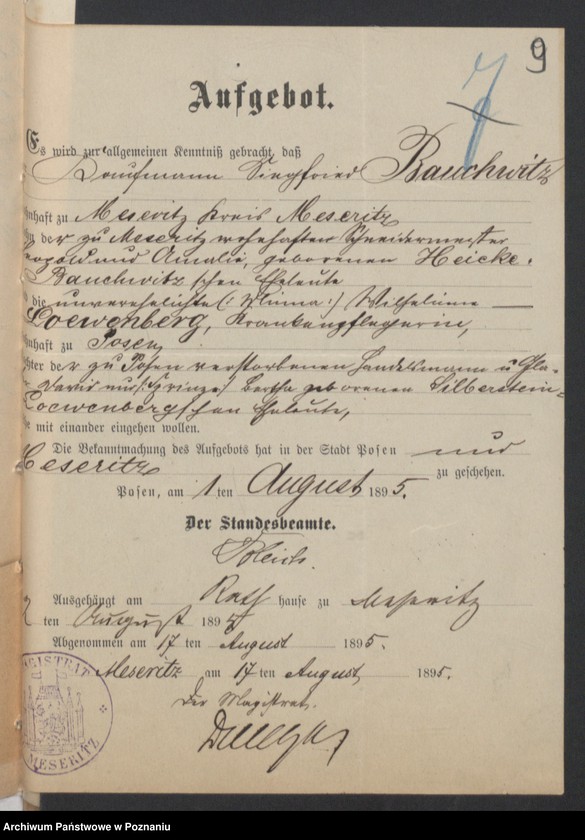 9
7
Aufgebot.
Es wird zur allgemeinen Kenntniß gebracht, daß
Kaufmann Siegfried Bauchwitz
nhaft zu Meseritz Kreis Meseritz
der zu Meseritz wohnhaften Schneidermeister
und Amalie, geborenen Heicke-
Bauchwitz'schen Eheleute
die unverehelichte (: Minna :) Wilhelmine
Loewenberg, Krankenpflegerin,
nhaft zu Posen
ter der zu Posen verstorbenen Handelsmann u. Gla-
David und (: Prinze :) Bertha geborenen Silberstein-
Loewenberg'schen Eheleute,
e mit einander eingehen wollen.
Die Bekanntmachung des Aufgebots hat in der Stadt Posen und
Meseritz zu geschehen.
Posen, am 1 ten August 1895.
Der Standesbeamte.
Ausgehängt am Rath hause zu Meseritz
2 ten August 1895
Abgenommen am 17 ten August 1895.
Meseritz am 17 ten August 1895.
Der Magistrat.
MAGISTRAT
MESERITZ
Archiwum Państwowe w Poznaniu